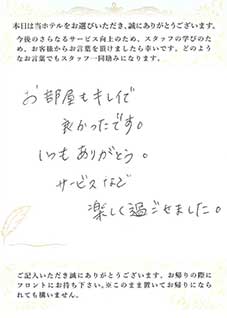 本日は当ホテルをお選びいただき、誠にありがとうございます。
今後のさらなるサービス向上のため、スタッフの学びのた
め、お客様からお言葉を頂けましたら幸いです。どのよう
なお言葉でもスタッフ一同励みになります。
お部屋もキレイで
良かったです。
いつもありがとう。
サービスなど
楽しく過ごせました。
ご記入いただき誠にありがとうございます。お帰りの際に
フロントにお持ち下さい。※このまま置いてお帰りになら
れても構いません。